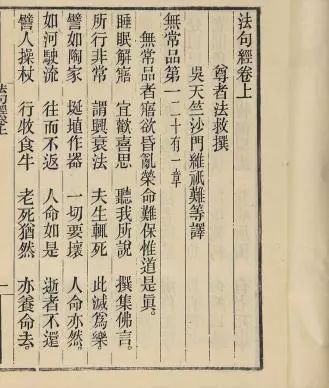 法句經卷上
尊者法救撰
吳天竺沙門維祇難等譯
無常品第一二十有一章
無常品者寤欲昏亂榮命難保惟道是眞。
睡眠解寤 宜歡喜思 聽我所說 撰集佛言。
所行非常 謂興衰法 夫生輒死 此滅爲樂。
譬如陶家 埏埴作器 一切要壞 人命亦然。
如河駛流 往而不返 人命如是 逝者不還
譬人操杖 行牧食牛 老死猶然 亦養命去。
法句經卷上 一